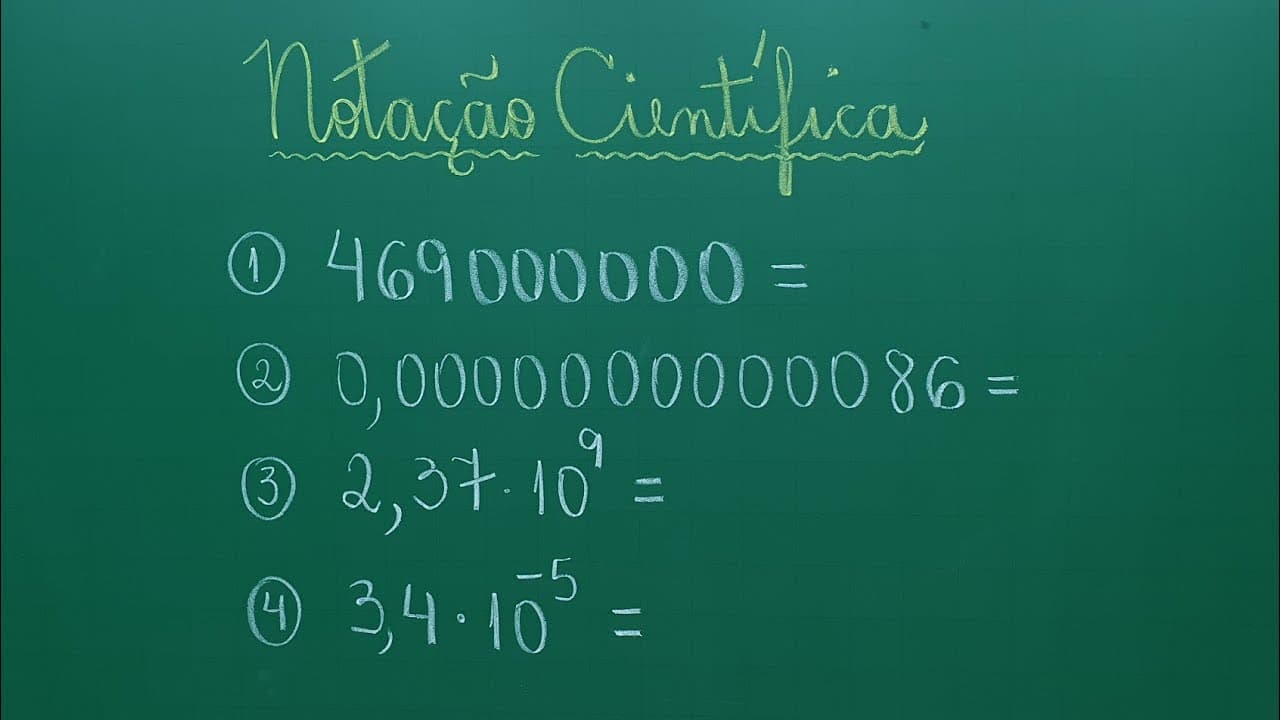 Notação Científica
① 469000000 =
② 0,0000000000086 =
③ 2,37 · 10⁹ =
④ 3,4 · 10⁻⁵ =